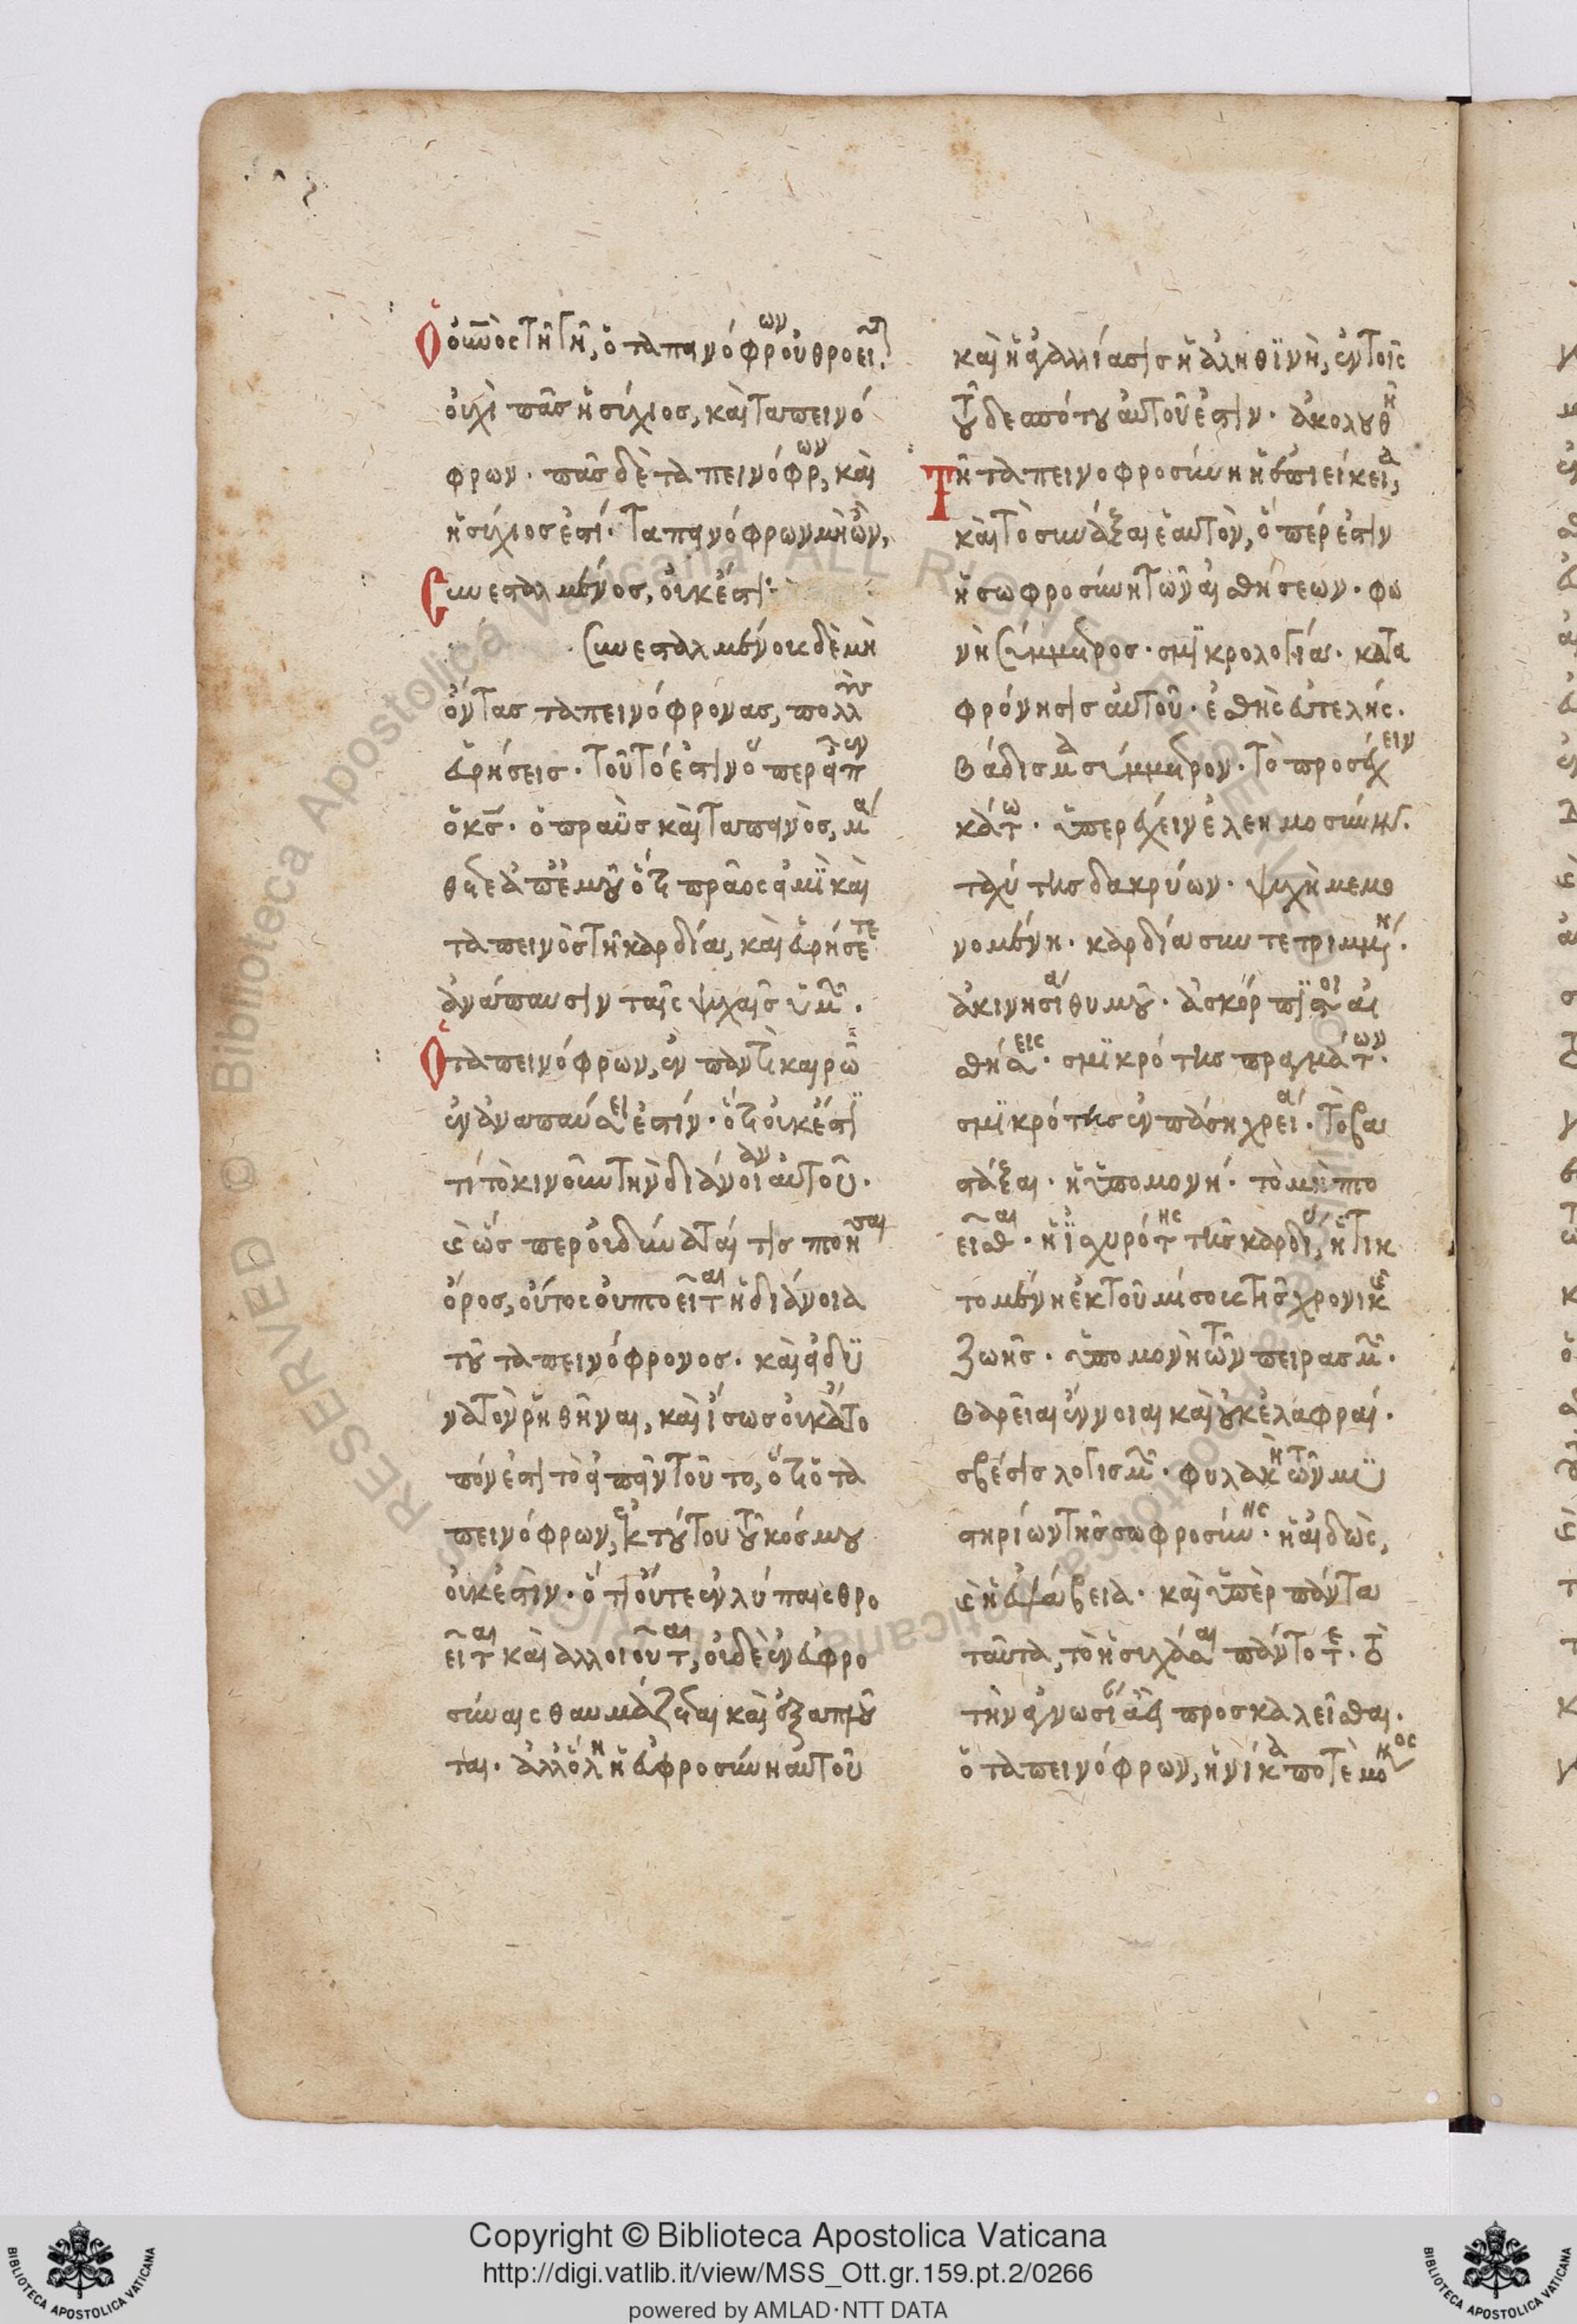 ὁ οὐνὸς τῆ γῆ, ὁ ταπεινόφρων οὐ θροεῖται.
οὐχὶ πᾶς ἡσύχιος, καὶ ταπεινό
φρων. πᾶς δὲ ταπεινόφρων, καὶ
ἡσύχιος ἐστί. ταπεινόφρων μὴ ὢν,
συνεσταλμένος, οὐκ ἔστι:
συνεσταλμένους δὲ μὴ
ὄντας ταπεινόφρονας, πολλοὺς
εὑρήσεις. τοῦτό ἐστιν ὅπερ εἶπεν
ὁ κς. ὁ πραῢς καὶ ταπεινὸς, μά
θετε ἀπ' ἐμοῦ ὅτι πρᾶος εἰμὶ καὶ
ταπεινὸς τῆ καρδία, καὶ εὑρήσετε
ἀνάπαυσιν ταῖς ψυχαῖς ὑμῶν.
ὁ ταπεινόφρων, ἐν παντὶ καιρῶ
ἐν ἀναπαύσει ἐστίν. ὅτι οὐκ ἔστι
τί τὸ κινοῦν τὴν διάνοιαν αὐτοῦ.
καὶ ὥσπερ οὐ δύναταί τις πτοῆσαι
ὄρος, οὕτως οὐ πτοεῖται ἡ διάνοια
τοῦ ταπεινόφρονος. καὶ εἰ δυ
νατὸν ῥηθῆναι, καὶ ἴσως οὐκ ἄτο
πόν ἐστι τὸ εἰπεῖν τοῦτο, ὅτι ὁ τα
πεινόφρων, ἐκ τούτου τοῦ κόσμου
οὐκ ἔστιν. ὅτι οὔτε ἐν λύπαις θρο
εῖται καὶ ἀλλοιοῦται, οὐδὲ ἐν εὐφρο
σύναις θαυμάζεται καὶ ἐξαπλοῦ
ται. ἀλλ' ὅλη ἡ εὐφροσύνη αὐτοῦ
καὶ ἡ ἀγαλλίασις ἡ ἀληθινὴ, ἐν τοῖς
τοῦ δεσπότου αὐτοῦ ἐστιν. ἀκολουθῆ
τῆ ταπεινοφροσύνη ἡ ἐπιείκεια,
καὶ τὸ συνάξαι ἑαυτὸν, ὅπέρ ἐστιν
ἡ σωφροσύνη τῶν αἰσθήσεων. φω
νὴ σύμμετρος. σμικρολογία. κατα
φρόνησις αὐτοῦ. ἐσθὴς εὐτελής.
βάδισμα σύμμετρον. τὸ προσέχειν
κάτω. ὑπερέχειν ἐλεημοσύνης.
ταχύτης δακρύων. ψυχὴ μεμο
νομένη. καρδία συντετριμμένη.
ἀκινησία θυμοῦ. ἀσκόρπιστοι αἰ
σθήσεις. σμικρότης πραγμάτων.
σμικρότης ἐν πάση χρεία. τὸ βα
στάξαι. ἡ ὑπομονή. τὸ μὴ πτο
εῖσθαι. ἡ ἰσχυρότης τῆς καρδίας, ἡ τικ
τομένη ἐκ τοῦ μίσους τῆς χρονικῆς
ζωῆς. ὑπομονὴ τῶν πειρασμῶν.
βαρεῖαι ἔννοιαι καὶ οὐκ ἐλαφραί.
σβέσις λογισμῶν. φυλακὴ τῶν μυ
στηρίων τῆς σωφροσύνης. ἡ αἰδὼς,
καὶ ἡ εὐλάβεια. καὶ ὑπὲρ πάντα
ταῦτα, τὸ ἡσυχάσαι πάντοτε. τὸ
τὴν ἀγνωσίαν ἀεὶ προσκαλεῖσθαι.
ὁ ταπεινόφρων, ἡνίκα ποτὲ μονος
Copyright © Biblioteca Apostolica Vaticana
http://digi.vatlib.it/view/MSS_Ott.gr.159.pt.2/0266
powered by AMLAD·NTT DATA